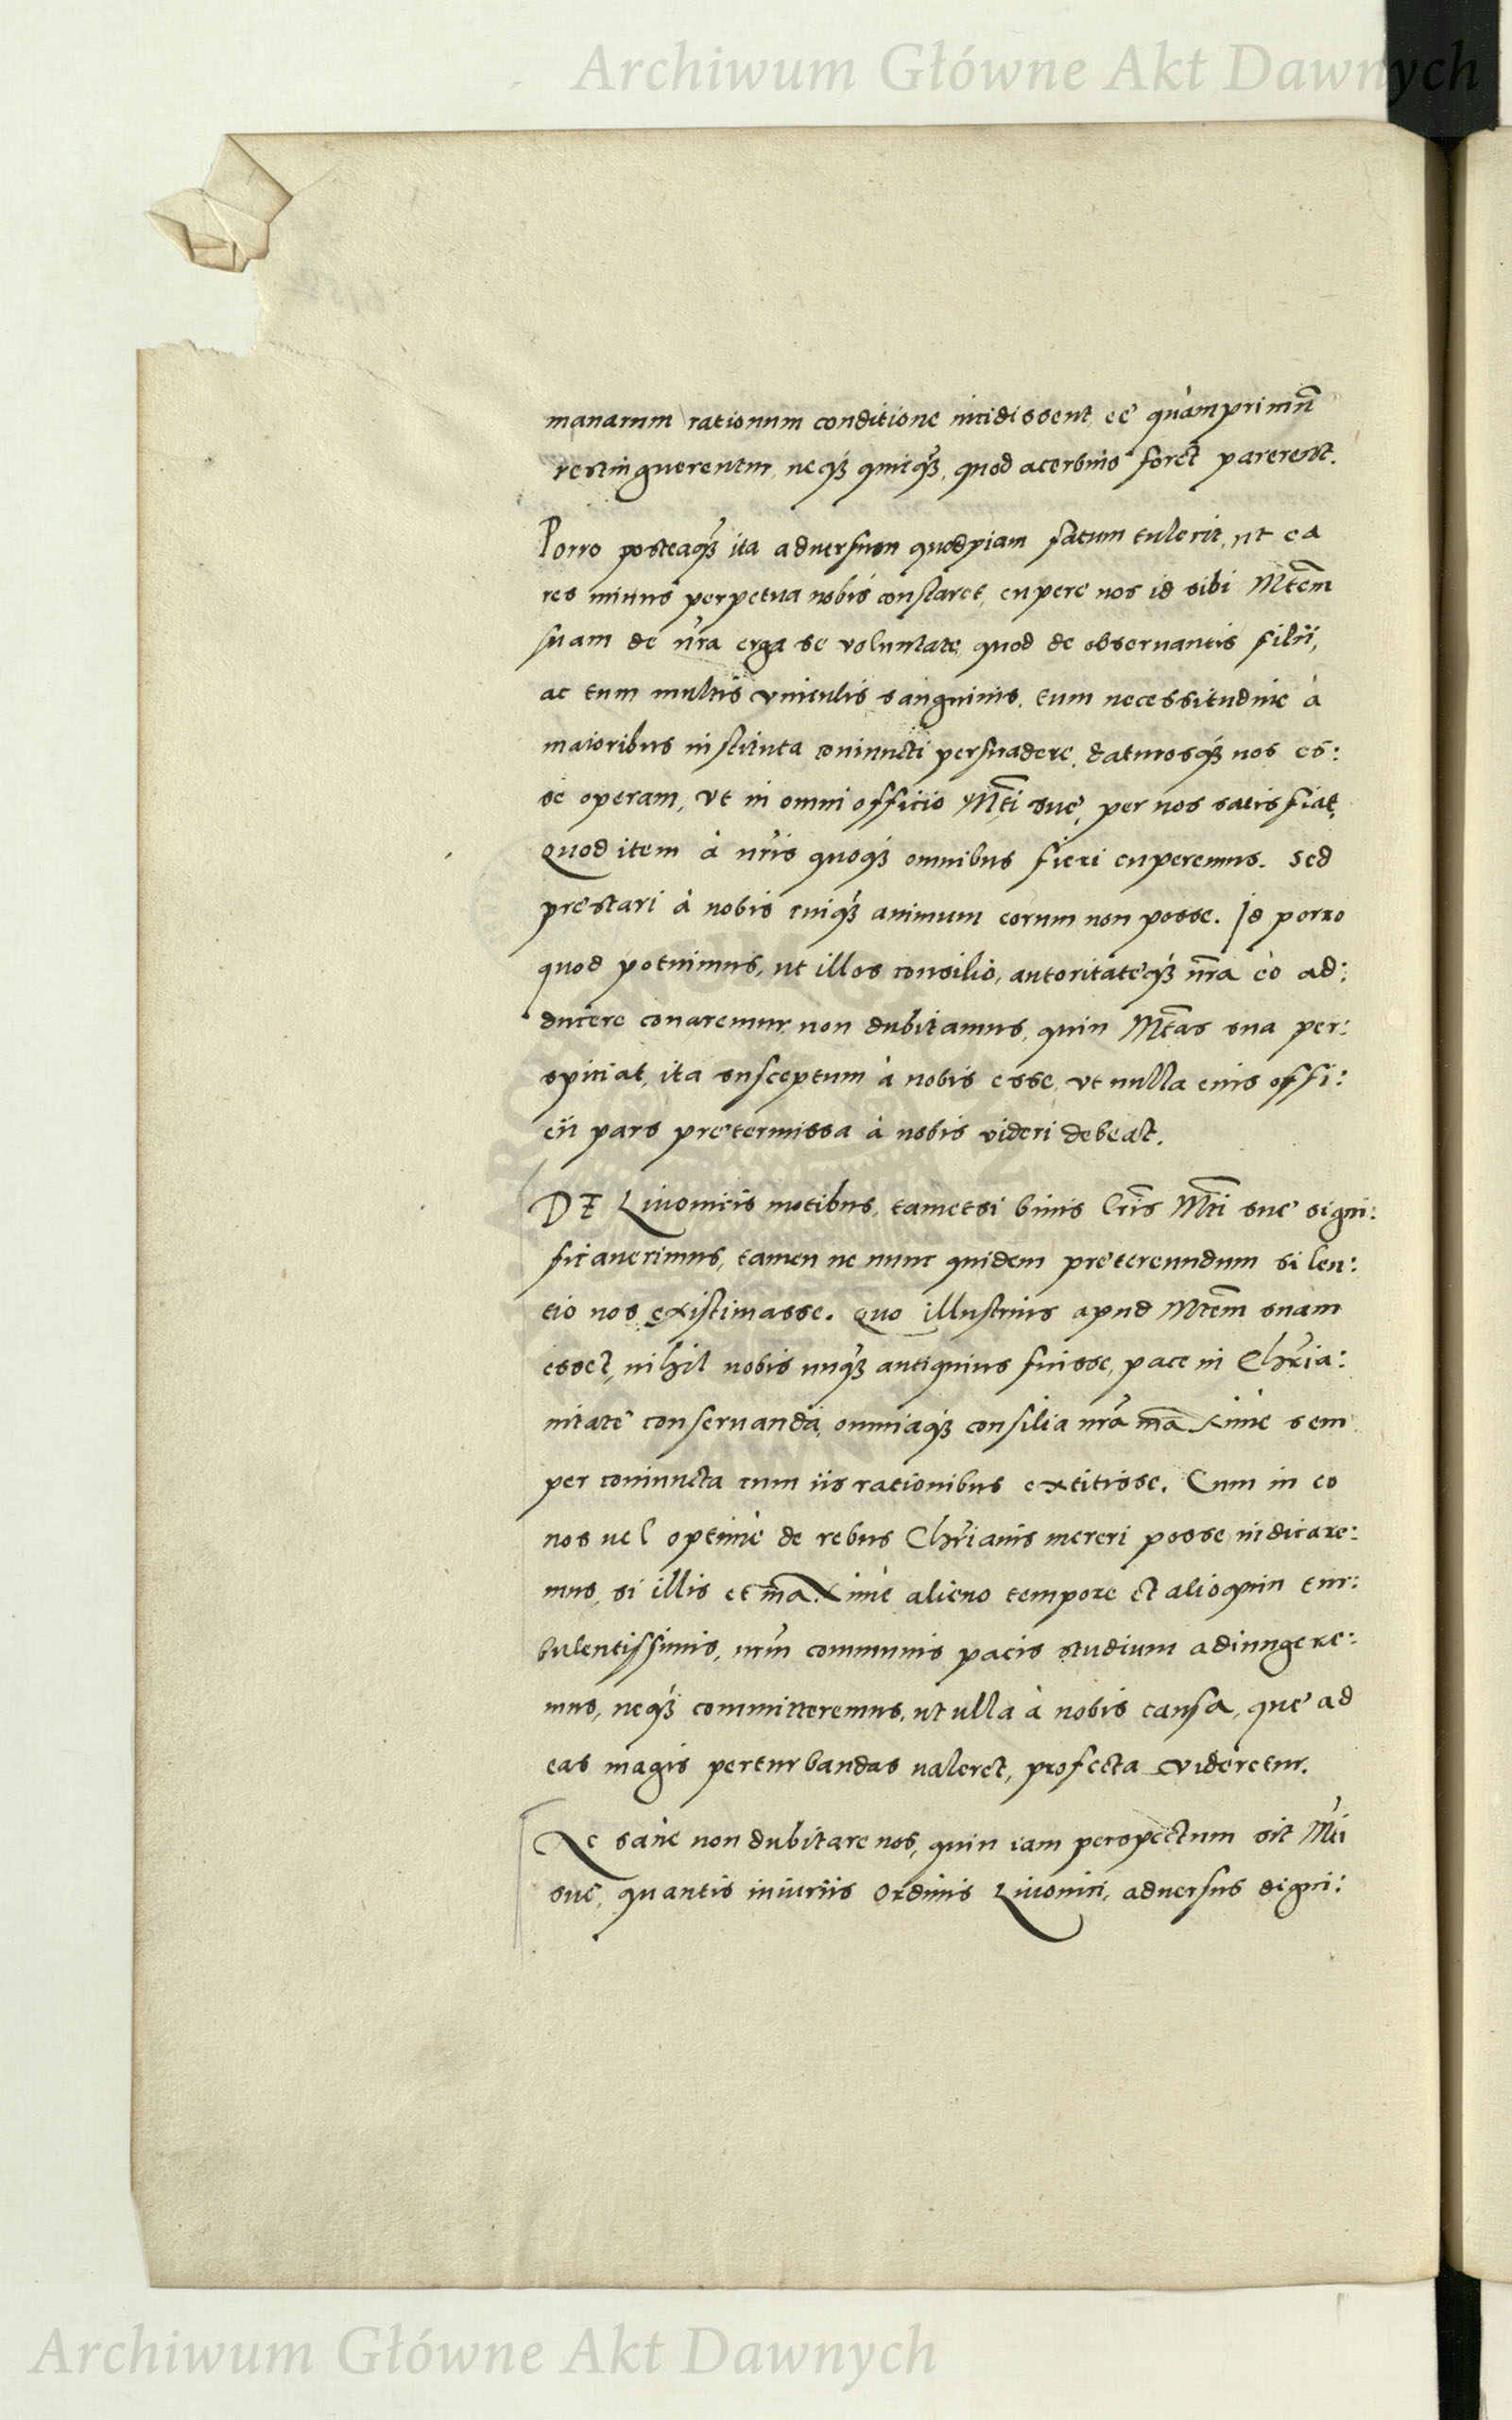 Archiwum Główne Akt Dawnych
manarum rationum conditione incidissent, eę quàmprimũ
restinguerentur, neq́ꝫ quicq̃ꝫ, quod acerbius foret parerent.
Porro posteaq̃ꝫ ita aduersum quodpiam fatum tulerit, ut ea
res minus perpetua nobis constaret, cupere nos id sibi Mtẽm
suam de nr̃a erga se voluntate, quod de obseruantis filii,
ac tum multis vinculis sanguinis, tum necessitudine à
maioribus instituta coniuncti persuadere, daturosq́ꝫ nos es:
se operam, vt in omni officio Mtĩ suę, per nos satisfiat,
Quod item à nr̃is quoq́ꝫ omnibus fieri cuperemus. Sed
pręstari à nobis cuiq́ꝫ animum eorum non posse. Id porro
quod potuimus, ut illos consilio, autoritateq́ꝫ nr̃a eò ad:
ducere conaremur non dubitamus, quin Mtãs sua per:
spiciat, ita susceptum à nobis esse, vt nulla eius offi:
cii pars prętermissa à nobis videri debeat.
DE Liuonicis motibus, tametsi binis lr̃is Mtĩ suę signi:
ficauerimus, tamen ne nunc quidem prętereundum silen:
tio nos existimasse. Quo illustrius apud Mtẽm suam
esset, nihil nobis unq̃ꝫ antiquius fuisse, pace in Chr̃ia:
nitate conseruanda, omniaq́ꝫ consilia nr̃a mãxime sem
per coniuncta cum iis rationibus extitisse. Cum in eo
nos uel optimè de rebus Chr̃ianis mereri posse iudicare:
mus, si illis et mãximè alieno tempore et alioquin tur:
bulentissimis, nr̃m communis pacis studium adiungere:
mus, neq́ꝫ committeremus, ut ulla à nobis causa, quę ad
eas magis perturbandas ualeret, profecta videretur.
Ac sanè non dubitare nos, quin iam perspectum sit Mtĩ
suę, quantis iniuriis Ordinis Liuonici, aduersus digni:
Archiwum Główne Akt Dawnych